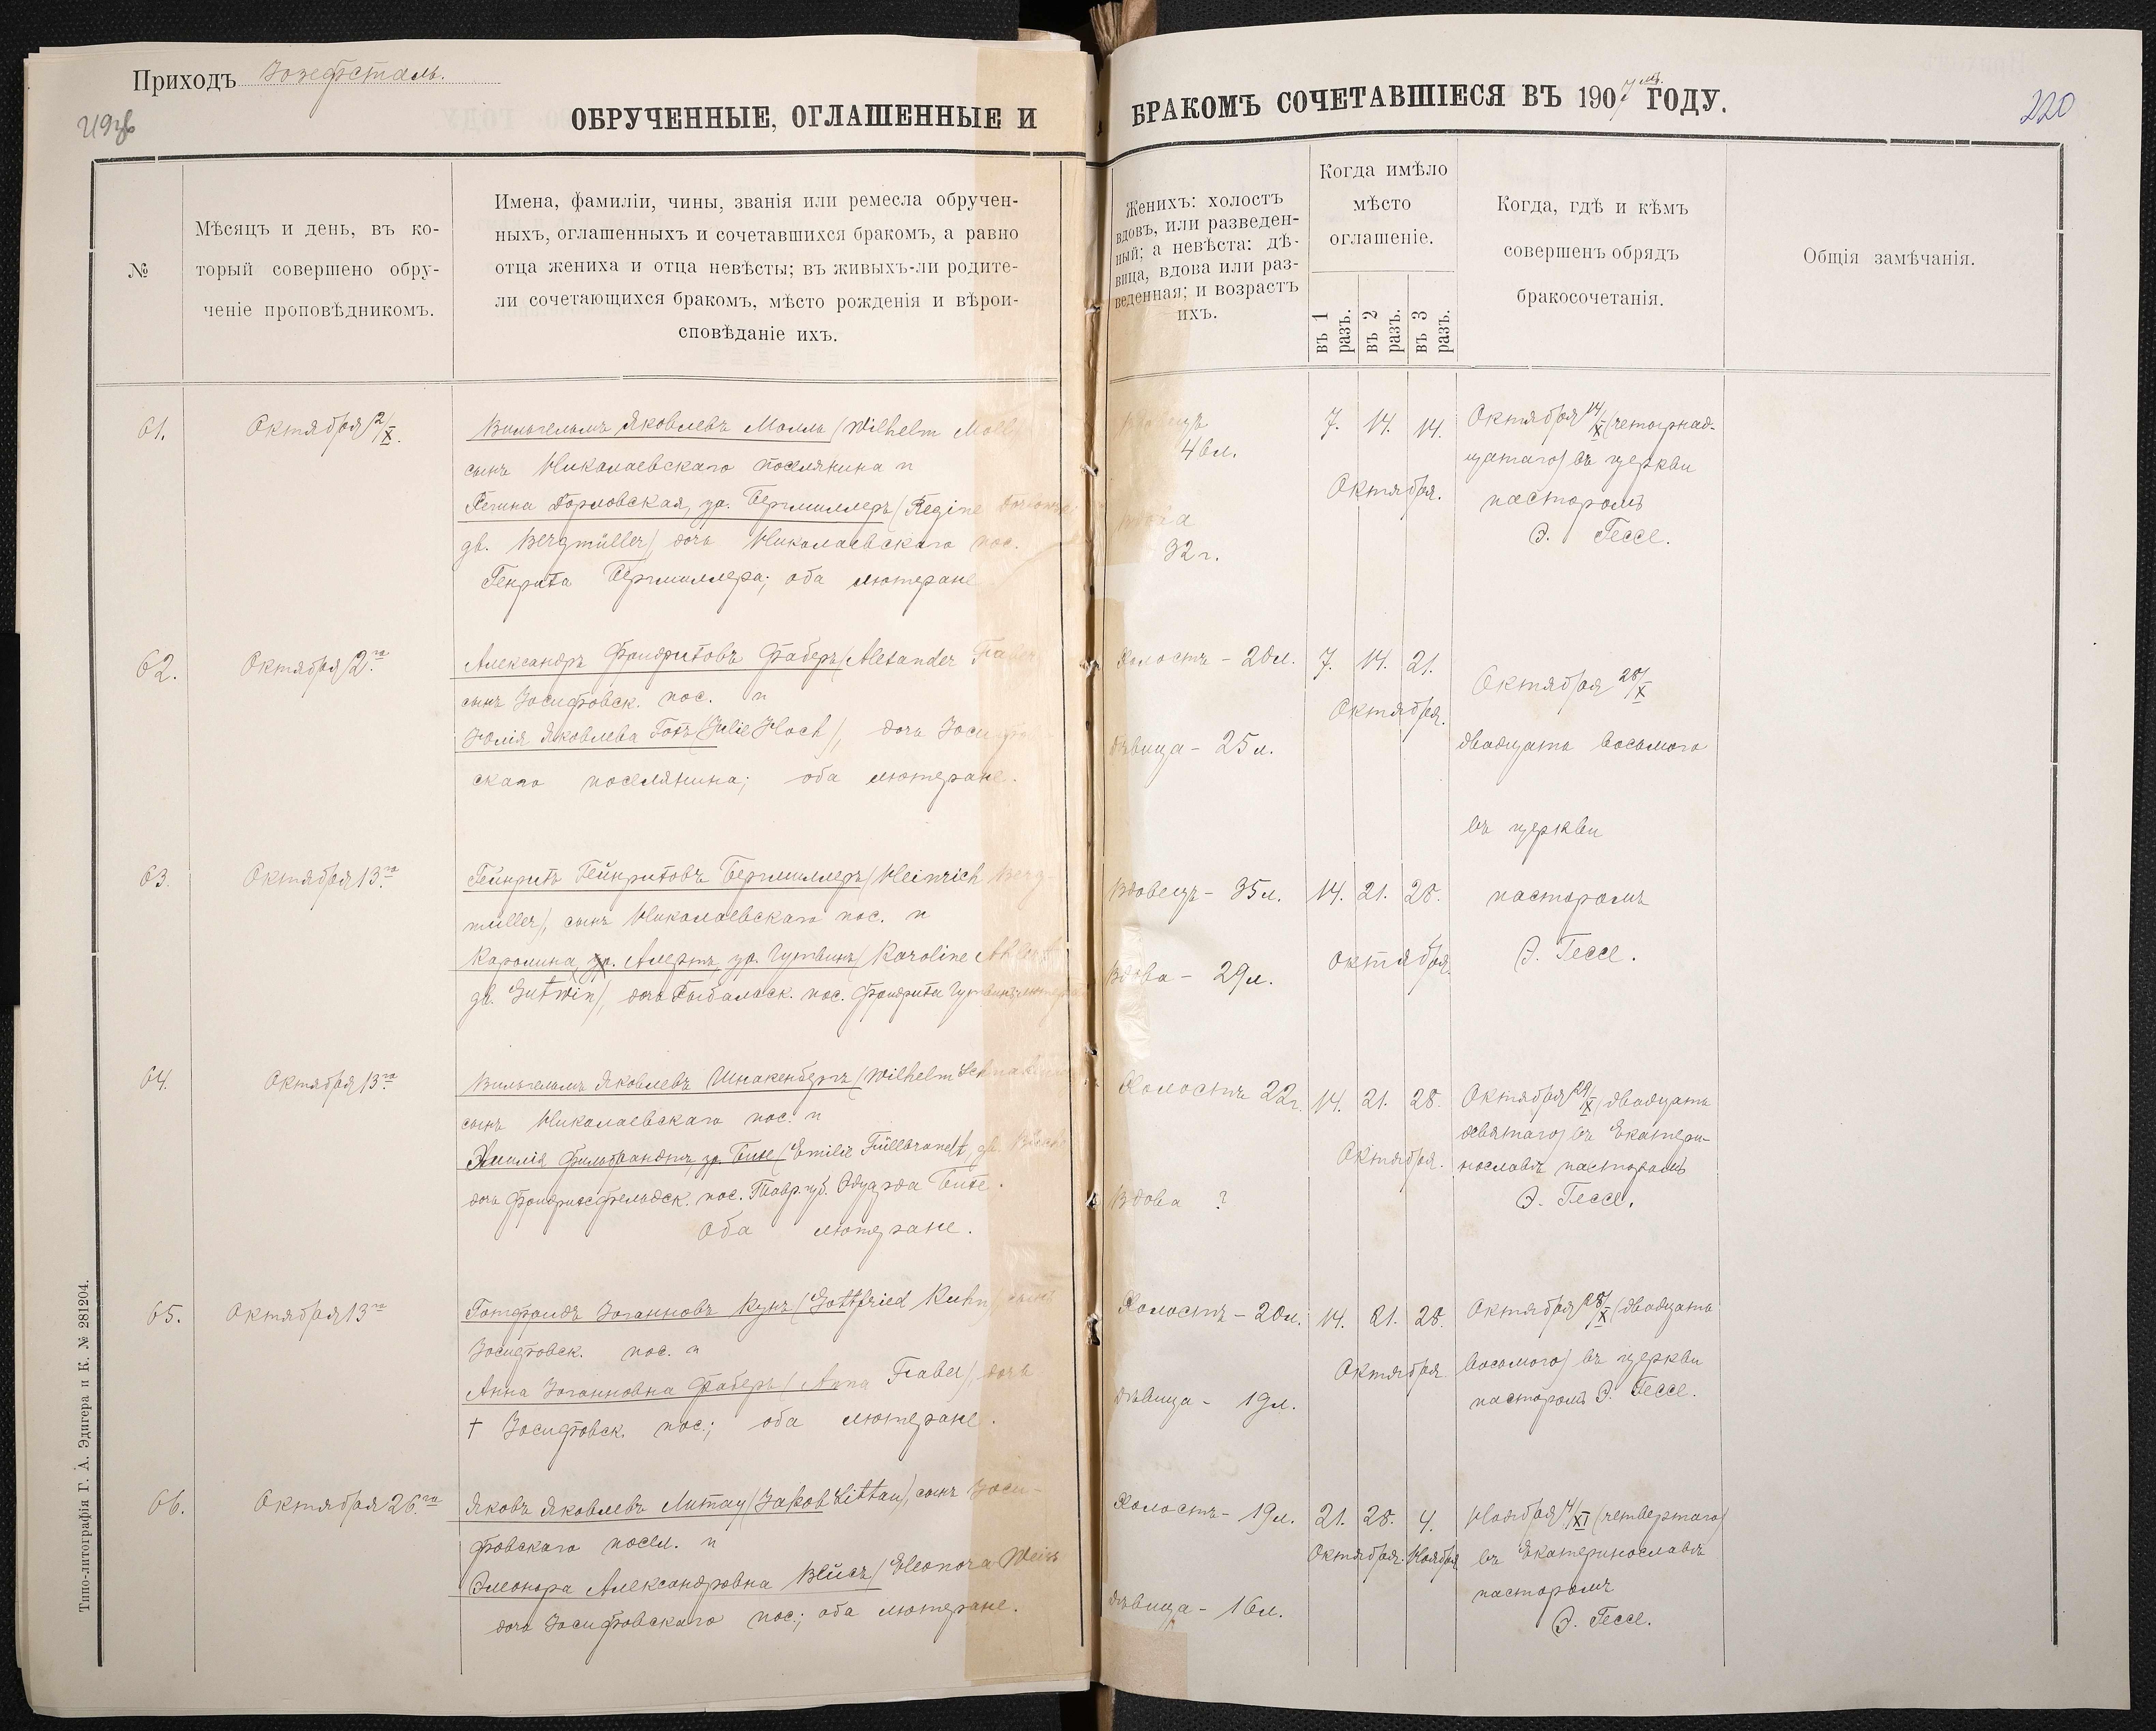 Приходъ Іозефсталь.
219об
ОБРУЧЕННЫЕ, ОГЛАШЕННЫЕ И БРАКОМЪ СОЧЕТАВШІЕСЯ ВЪ 1907 ГОДУ.
220
№
Мѣсяцъ и день, въ ко-
торый совершено обру-
ченіе проповѣдникомъ.
Имена, фамиліи, чины, званія или ремесла обручен-
ныхъ, оглашенныхъ и сочетавшихся бракомъ, а равно
отца жениха и отца невѣсты; въ живыхъ-ли родите-
ли сочетающихся бракомъ, мѣсто рожденія и вѣрои-
сповѣданіе ихъ.
Женихъ: холостъ
вдовъ, или разведен-
ный; а невѣста: дѣ-
вица, вдова или раз-
веденная; и возрастъ
ихъ.
Когда имѣло
мѣсто
оглашеніе.
въ 1 разъ.
въ 2 разъ.
въ 3 разъ.
Когда, гдѣ и кѣмъ
совершенъ обрядъ
бракосочетанія.
Общія замѣчанія.
61.
Октября 2/X.
Вильгельмъ Яковлевъ Моллъ (Wilhelm Moll)
сынъ Николаевскаго поселянина и
Регина Горловская, ур. Бергмиллеръ (Regine
gb. Bergmüller) дочь Николаевскаго пос.
Генриха Бергмиллера; оба лютеране
Вдовецъ
46л.
Вдова
32г.
7. 14. 14.
Октября.
Октября 14/X (четырнад-
цатаго) въ церкви
пасторомъ
Э. Гессе.
62.
Октября 2го
Александръ Фридриховъ Фаберъ (Alexander Faber)
сынъ Іосифовск. пос. и
Юлія Яковлева Гохъ (Julie Hoch), дочь Іосифов-
скаго поселянина; оба лютеране.
Холостъ - 20л.
Дѣвица - 25л.
7. 14. 21.
Октября.
Октября 28/X
двадцать восьмого
въ церкви
пасторомъ
Э. Гессе.
63.
Октября 13го
Гейнрихъ Гейнриховъ Бергмиллеръ (Heinrich Berg-
müller), сынъ Николаевскаго пос. и
Каролина Алертъ, ур. Гутвинъ (Karoline Ahlert
gb. Gutwin), дочь Рыбальск. пос. Фридриха Гутвинъ
Вдовецъ - 35л.
Вдова - 29л.
14. 21. 28.
Октября
64.
Октября 13го
Вильгельмъ Яковлевъ Шнакенбергъ (Wilhelm Schnakenberg
сынъ Николаевскаго пос. и
Эмилія Фильбрандтъ ур. Бихе (Emilie Füllbrandt, gb.
дочь Фридрихсфельдск. пос. Тавр. губ. Эдуарда Бихе.
Оба лютеране.
Холостъ 22г.
Вдова ?
14. 21. 28.
Октября.
Октября 29/X (двадцать
девятаго) въ Екатери-
нославѣ пасторомъ
Э. Гессе.
65.
Октября 13го
Готфридъ Іоганновъ Кунъ (Gottfried Kuhn) сынъ
Іосифовск. пос. и
Анна Іоганновна Фаберъ (Anna Faber), дочь
† Іосифовск. пос.; оба лютеране.
Холостъ - 20л.
Дѣвица - 19л.
14. 21. 28.
Октября
Октября 28/X (двадцать
восьмого) въ церкви
пасторомъ Э. Гессе.
66.
Октября 26го
Яковъ Яковлевъ Литтау (Jakob Littau), сынъ Іоси-
фовскаго посел. и
Элеонора Александровна Вейсъ (Eleonora Weiss
дочь Іосифовскаго пос.; оба лютеране.
Холостъ - 19л.
Дѣвица - 16л.
21. 28. 4.
Октября. Ноября
Ноября 4/XI (четвертаго)
въ Екатеринославѣ
пасторомъ
Э. Гессе.
Типо-литографія Г. А. Эдигера и К. № 281204.